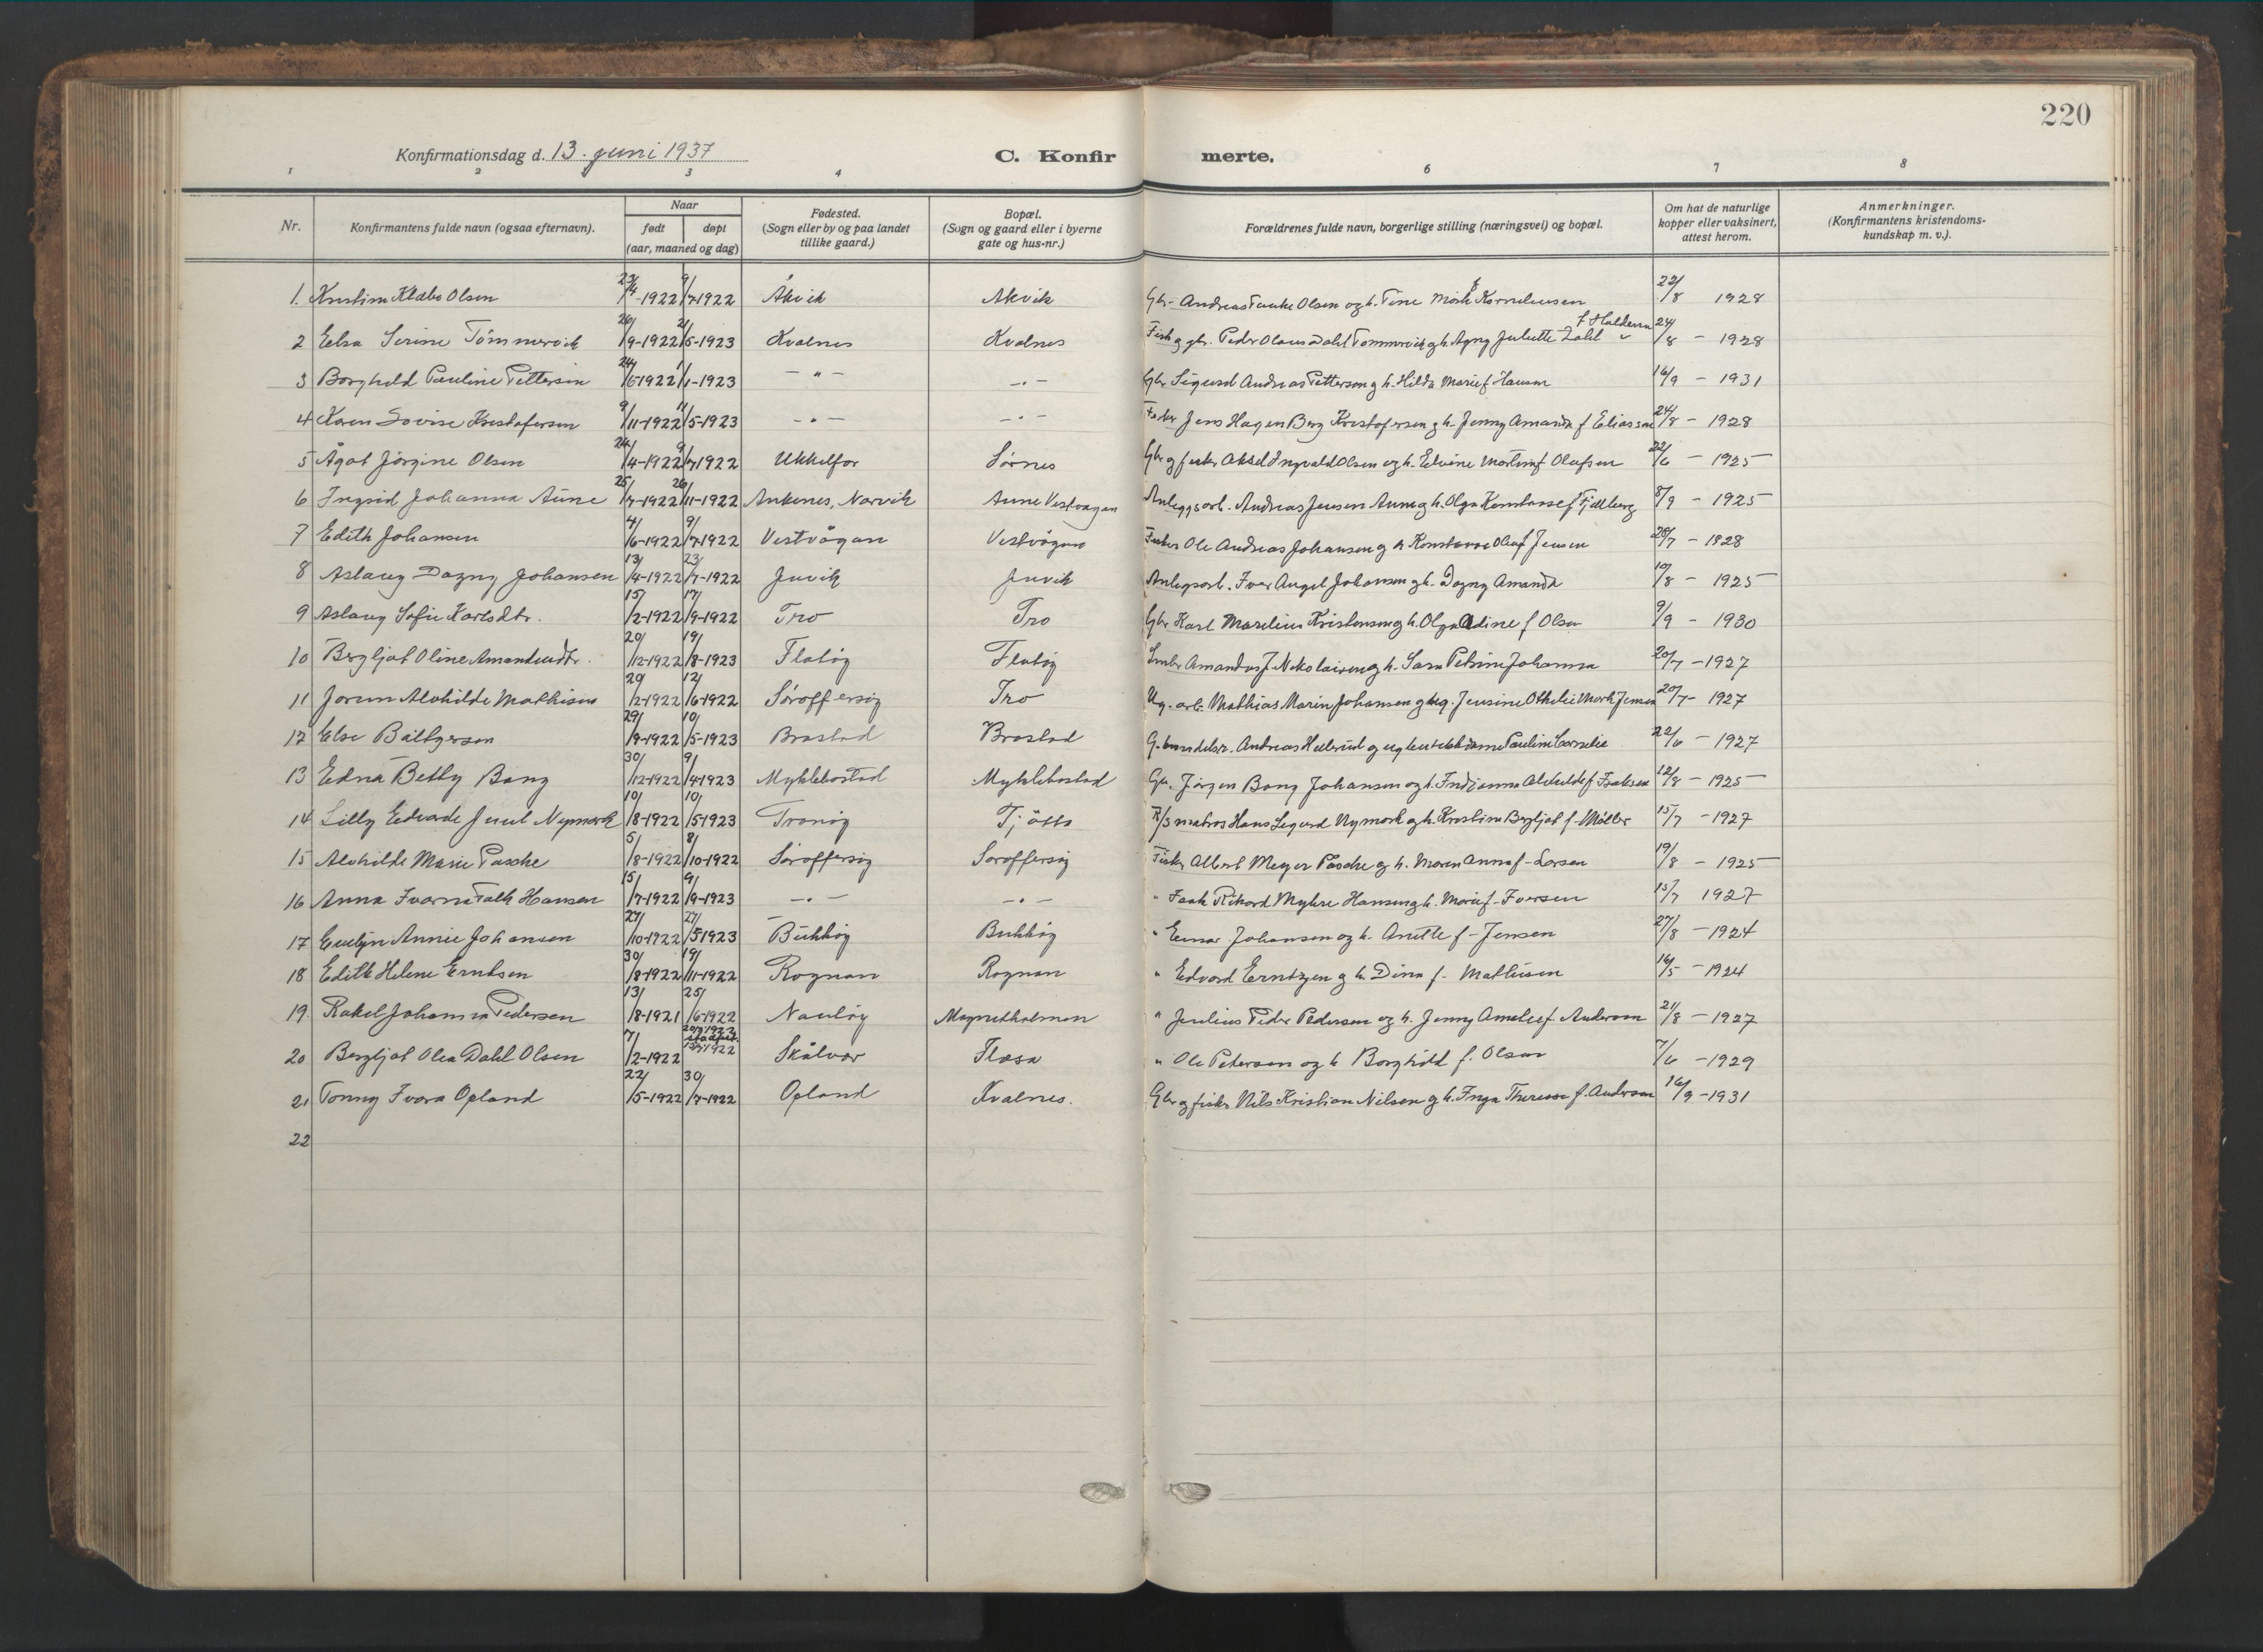 220
Konfirmationsdag d. 13. juni 1937 C. Konfirmerte.
1 2 3 4 6 7 8
Nr. Konfirmantens fulde navn (ogsaa efternavn). Naar født døpt (aar, maaned og dag) Fødested. (Sogn eller by og paa landet tillike gaard.) Bopæl. (Sogn og gaard eller i byerne gate og hus-nr.) Forældrenes fulde navn, borgerlige stilling (næringsvei) og bopæl. Om hat de naturlige kopper eller vaksinert, attest herom. Anmerkninger. (Konfirmantens kristendomskundskap m. v.).
1. Kristine Klæbo Olsen 23/4-1922 9/7-1922 Åkvik Åkvik Gbr. Andreas Olsen og h. Tine Mörk Korneliussen 22/8 1928
2 Elsa Serine Tömmervik 26/9-1922 21/5-1923 Kvalnes Kvalnes Fisk og gbr. Peder Olaus Dahl Tömmervik og h. Agny Juliette Dahl f Haldorsen 24/8 - 1928
3 Borghild Pauline Pettersen 24/6-1922 1/1-1923 - " - - " - Gbr Sigurd Andreas Pettersen g h. Hilda Marie f Hansen 16/9 - 1931
4 Karen Lovise Kristofersen 9/11-1922 11/5-1923 - " - - " - Fisker Jens Hagen Berg Kristofersen g h. Jenny Amanda f Eliassen 24/8 - 1928
5 Ågot Jörgine Olsen 24/4-1922 9/7-1922 Sörnes Gbr g fisker Aksel Ingvald Olsen og h. Edvine Martine f Olufsen 22/6 - 1925
6 Ingrid Johanna Aune 25/7-1922 26/11-1922 Ankenes, Narvik Aune Vestvågan Anleggsarb. Andreas Jensen Aune g h. Olga Konstanse f Fjellberg 8/9 - 1925
7 Edith Johansen 4/6-1922 9/7-1922 Vestvågan Vestvågan Fisker Ole Andreas Johansen g h Konstanse Olea f Jensen 28/7 - 1828
8 Aslaug Dagny Johansen 13/4-1922 23/7-1922 Juvik Juvik Anlegsarb. Iver Angel Johansen g h. Dagny Amanda 10/8 - 1925
9 Aslaug Sofie Karlsdtr. 15/2-1922 17/9-1922 Tro Tro Gbr Karl Marelius Kristensen g h. Olga Adine f Olsen 9/9 - 1930
10 Bergljot Oline Amandusdtr. 20/12-1922 19/8-1923 Flatöy Flatöy Småbr Amandus J Nikolaisen g h. Sara Petrine Johanna 20/7 - 1927
11 Jorun Alvhilde Mathisen 20/2-1922 12/6-1922 Söroffersöy Tro Ug. arb. Mathias Marin Johansen g ug. Jensine Othelie Mork Jensen 20/7 - 1927
12 Else Baltzersen 29/9-1922 10/5-1923 Brastad Brastad G. Andreas Hellerud g ug Pauline Cornelie 22/6 - 1927
13 Edna Betty Bang 30/12-1922 9/4-1923 Myklebostad Myklebostad Gbr. Jörgen Bang Johansen og h. Indianna Alvhilde f Isaksen 12/8 - 1925
14 Lilly Edvarde Juul Nymark 10/8-1922 10/5-1923 Tranöy Tjötta matros Hans Sigurd Nymark og h. Kristine Bergljot f. Möller 15/7 - 1927
15 Alvhilde Marie Pasche 5/8-1922 8/10-1922 Söroffersöy Söroffersöy Fisker Albert Meyer Pasche g h. Maren Anna f. Larsen 19/8 - 1925
16 Anna Ivarna Falk Hansen 15/7-1922 9/9-1923 - " - - " - " Isak Rikard Myhre Hansen g h. Marie f. Iversen 15/7 1927
17 Evelyn Annie Johansen 27/10-1922 27/5-1923 Bukköy Bukköy " Einar Johansen og h. Anette f. Jensen 27/8 - 1924
18 Edith Helene Erntsen 30/8-1922 19/11-1922 Rognan Rognan " Edvard Erntzen g h. Dina f. Mathisen 16/5 - 1924
19 Rakel Johanna Pedersen 13/8-1921 25/6-1922 Nautöy Magnetholmen " Julius Peder Pedersen og h. Jenny Amelie f Andersen 21/8 - 1927
20 Bergljot Olea Dahl Olsen 7/2-1922 1922 Skålvær Flosa " Ole Petersen og h Borghild f. Olsen 7/6 - 1929
21 Tonny Ivara Opland 22/5-1922 30/7-1922 Opland Kvalnes. Gbr g fisker Nils Kristian Nilsen g h. Inga Therese f. Andersen 16/9 - 1931
22